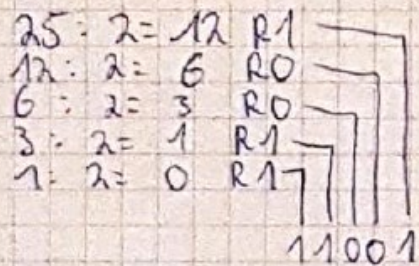 25 : 2 = 12 R1
12 : 2 = 6 R0
6 : 2 = 3 R0
3 : 2 = 1 R1
1 : 2 = 0 R1
11001